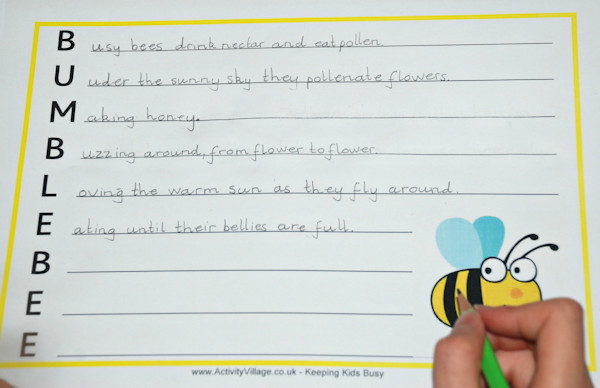 Busy bees drink nectar and eat pollen.
Under the sunny sky they pollenate flowers.
Making honey.
Buzzing around, from flower to flower.
Loving the warm sun as they fly around.
Eating until their bellies are full.
B
E
E
www.ActivityVillage.co.uk - Keeping Kids Busy